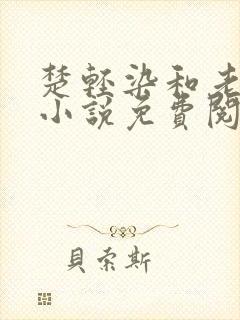 楚輕染和老
小說免費閱
貝索斯